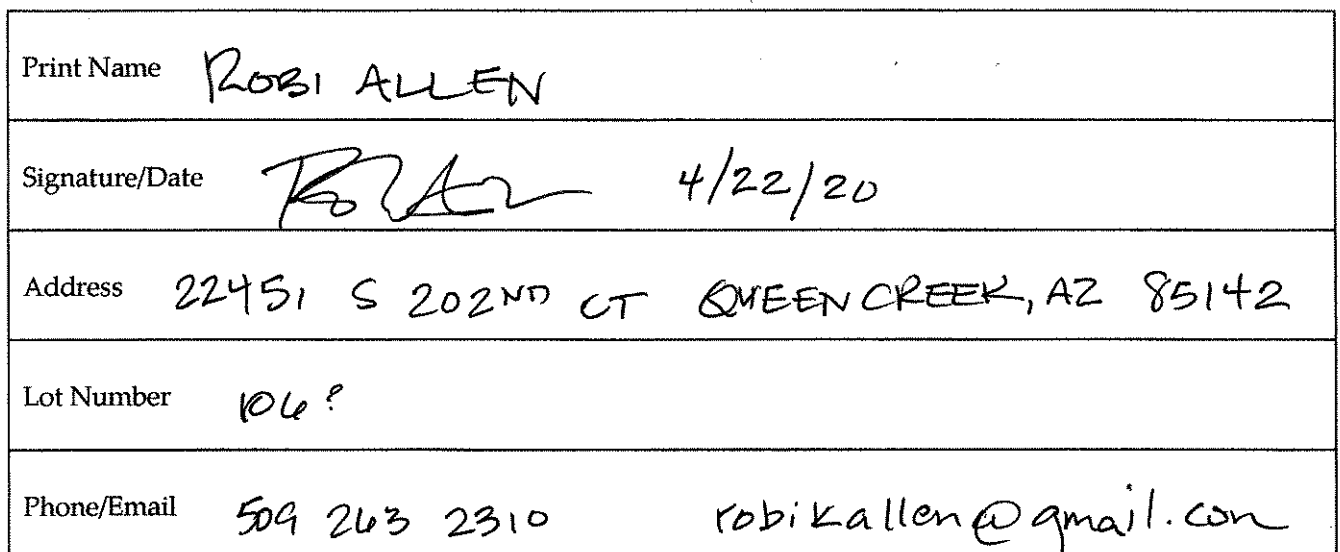 Print Name ROBI ALLEN
Signature/Date 4/22/20
Address 22451 S 202ND CT QUEEN CREEK, AZ 85142
Lot Number 106?
Phone/Email 509 263 2310 robikallen@gmail.com